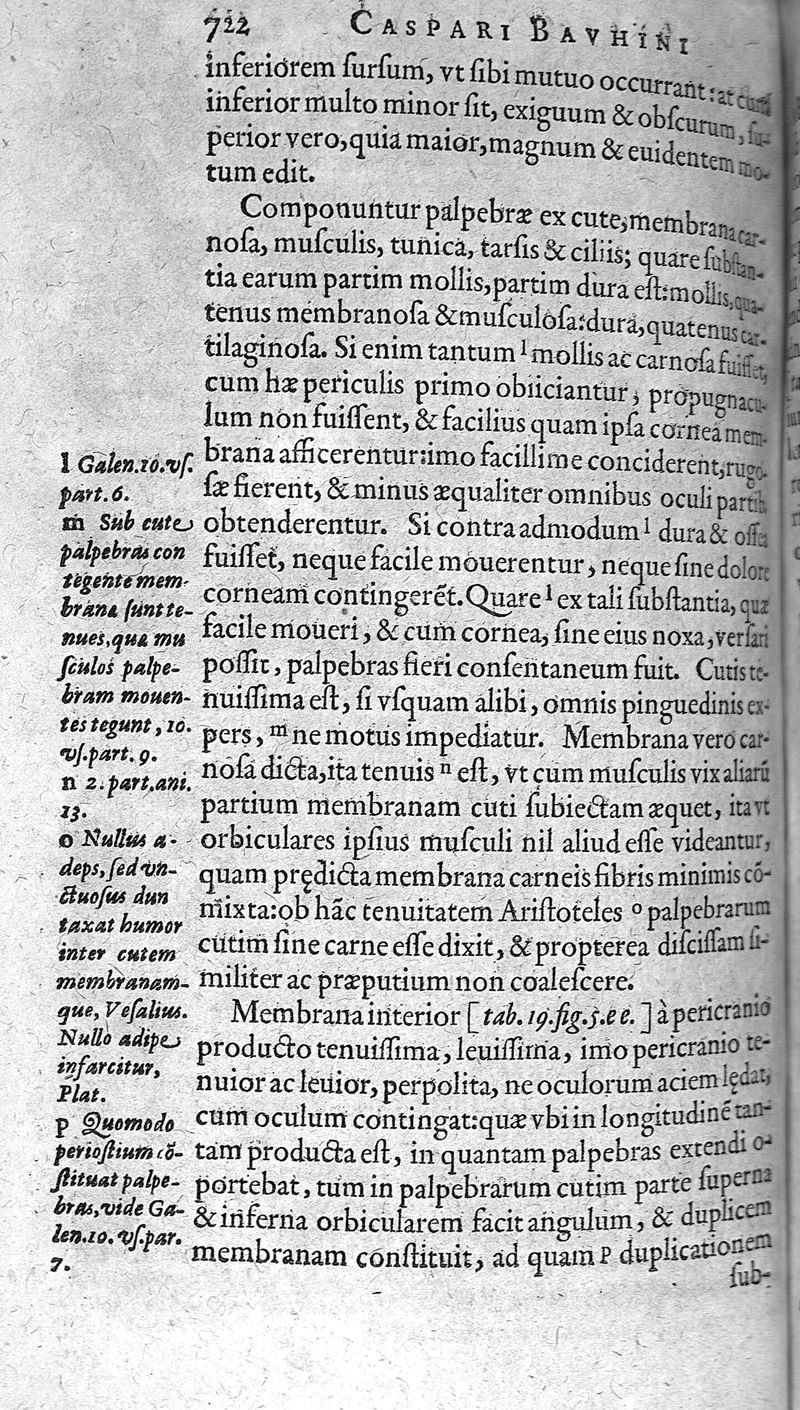 722 CASPARI BAVHINI
inferiorem ſurſum, vt ſibi mutuo occurrant: at cum
inferior multo minor ſit, exiguum & obſcurum, ſu-
perior vero, quia maior, magnum & euidentem mo-
tum edit.
Componuntur palpebræ ex cute, membrana car-
noſa, muſculis, tunica, tarſis & ciliis; quare ſubſtan-
tia earum partim mollis, partim dura eſt: mollis, qua-
tenus membranoſa & muſculoſa: dura, quatenus car-
tilaginoſa. Si enim tantum l mollis ac carnoſa fuiſſet,
cum hæ periculis primo obiiciantur, propugnacu-
lum non fuiſſent, & facilius quam ipſa cornea mem-
brana afficerentur: imo facillime conciderent, rugo-
ſæ fierent, & minus æqualiter omnibus oculi partib.
obtenderentur. Si contra admodum l dura & oſſea
fuiſſet, neque facile mouerentur, neque ſine dolore
corneam contingerēt. Quare l ex tali ſubſtantia, quæ
facile moueri, & cum cornea, ſine eius noxa, verſari
poſſit, palpebras fieri conſentaneum fuit. Cutis te-
nuiſſima eſt, ſi vſquam alibi, omnis pinguedinis ex-
pers, m ne motus impediatur. Membrana vero car-
noſa dicta, ita tenuis n eſt, vt cum muſculis vix aliarū
partium membranam cuti ſubiectam æquet, ita vt
orbiculares ipſius muſculi nil aliud eſſe videantur,
quam prędicta membrana carneis fibris minimis cō-
mixta: ob hāc tenuitatem Ariſtoteles o palpebrarum
cutim ſine carne eſſe dixit, & propterea diſciſſam ſi-
militer ac præputium non coaleſcere.
Membrana interior [tab. 19. fig. 5. e e.] à pericranio
producto tenuiſſima, leuiſſima, imo pericranio te-
nuior ac leuior, perpolita, ne oculorum aciem lędat,
cum oculum contingat: quæ vbi in longitudinē tan-
tam producta eſt, in quantam palpebras extendi o-
portebat, tum in palpebrarum cutim parte ſuperna
& inferna orbicularem facit angulum, & duplicem
membranam conſtituit, ad quam p duplicationem
ſub-
l Galen. 10. vſ.
part. 6.
m Sub cute
palpebras con
tegente mem-
branæ ſunt te-
nues, quæ mu
ſculos palpe-
bram mouen-
tes tegunt, 10.
vſ. part. 9.
n 2. part. ani.
13.
o Nullus a-
deps, ſed vn-
ctuoſus dun
taxat humor
inter cutem
membranam-
que, Veſalius.
Nullo adipe
infarcitur,
Plat.
p Quomodo
perioſtium cō-
ſtituat palpe-
bras, vide Ga-
len. 10. vſ. par.
7.